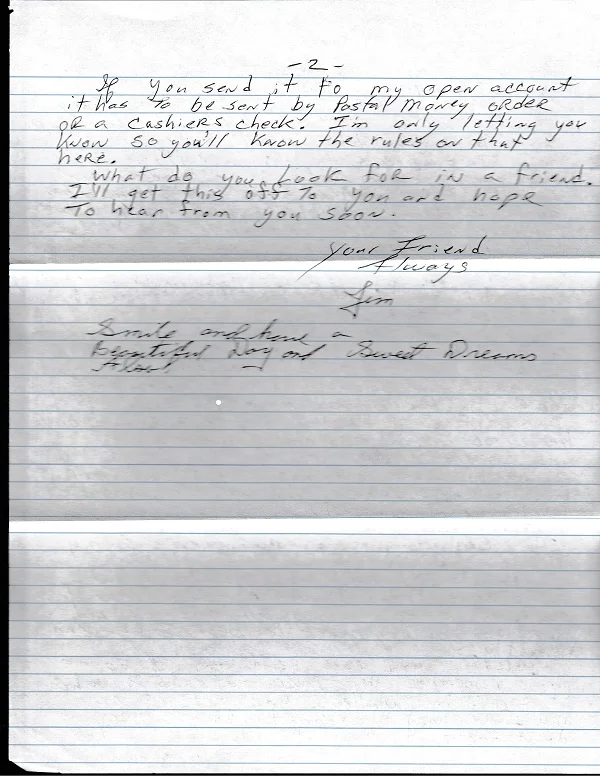 - 2 -
If you send it to my open account
it has to be sent by Postal Money ORder
OR a Cashiers check. I'm only letting you
know so you'll know the rules on that
here.
What do you Look FoR in a friend.
I'll get this off To you and hope
To hear from you soon.
Your Friend
Always
Jim
Smile and have a
Beautiful Day and Sweet Dreams
Also!